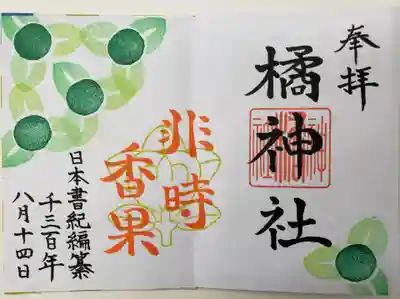 奉拝
橘神社
非時
香果
日本書紀編纂
千三百年
八月十四日